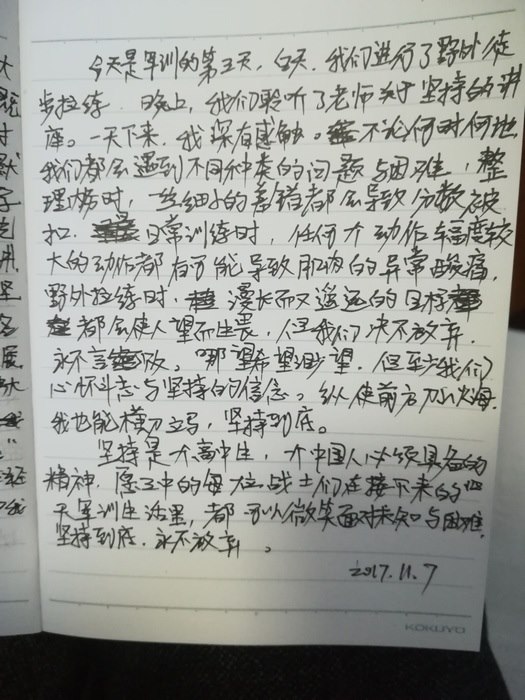 今天是军训的第三天，白天，我们进行了野外徒
步拉练．晚上，我们聆听了老师关于坚持的讲
座。一天下来，我深有感触。不论何时何地
我们都会遇到不同种类的问题与困难，整
理内务时，一丝细小的差错都会导致分数被
扣．日常训练时，任何一个动作幅度较
大的动作都有可能导致肌肉的异常酸痛，
野外拉练时，漫长而又遥远的目标
都会使人望而生畏，但我们决不放弃．
永不言败。哪望希望渺望．但至少我们
心怀斗志与坚持的信念。纵使前方刀山火海，
我也能横刀立马，坚持到底。
坚持是一个高中生，一个中国人必须具备的
精神．愿工中的每一位战士们在接下来的四
天军训生活里，都可以微笑面对未知与困难，
坚持到底．永不放弃。
2017.11.7
KOKUYO
大
时
坚